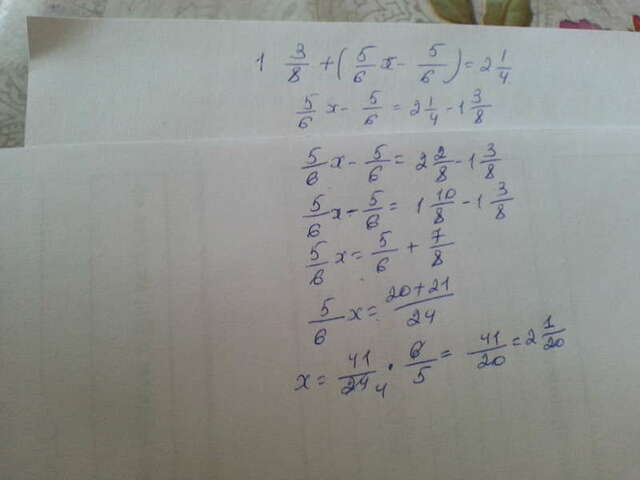 1 3/8 + (5/6 x - 5/6) = 2 1/4
5/6 x - 5/6 = 2 1/4 - 1 3/8
5/6 x - 5/6 = 2 2/8 - 1 3/8
5/6 x - 5/6 = 1 10/8 - 1 3/8
5/6 x = 5/6 + 7/8
5/6 x = 20+21/24
x = 41/24 4 · 6/5 = 41/20 = 2 1/20